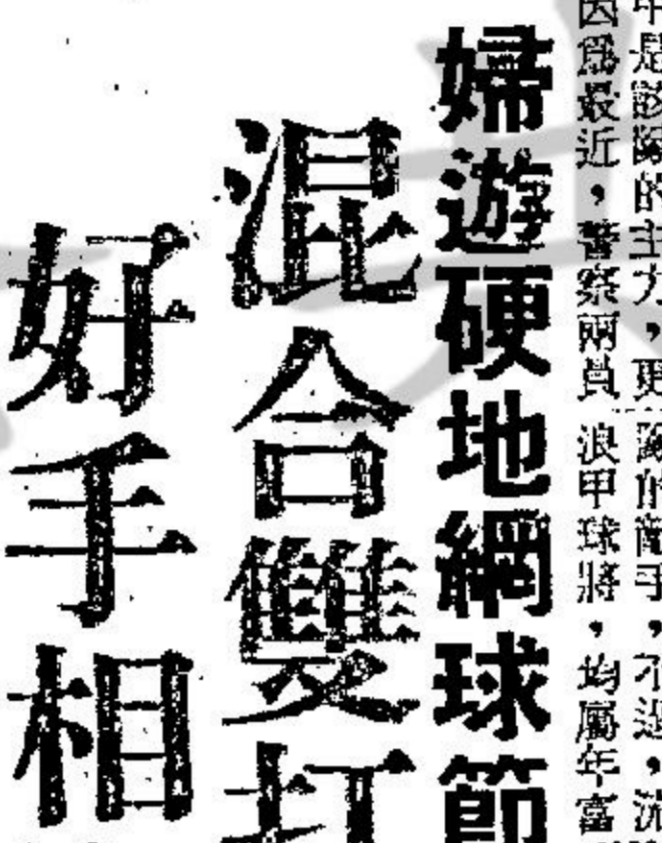 甲是該隊的主力，更
隊的敵手，不過，沈
因爲最近，警察兩員
浪甲球將，均屬年富
婦遊硬地網球節
混合雙打
好手相